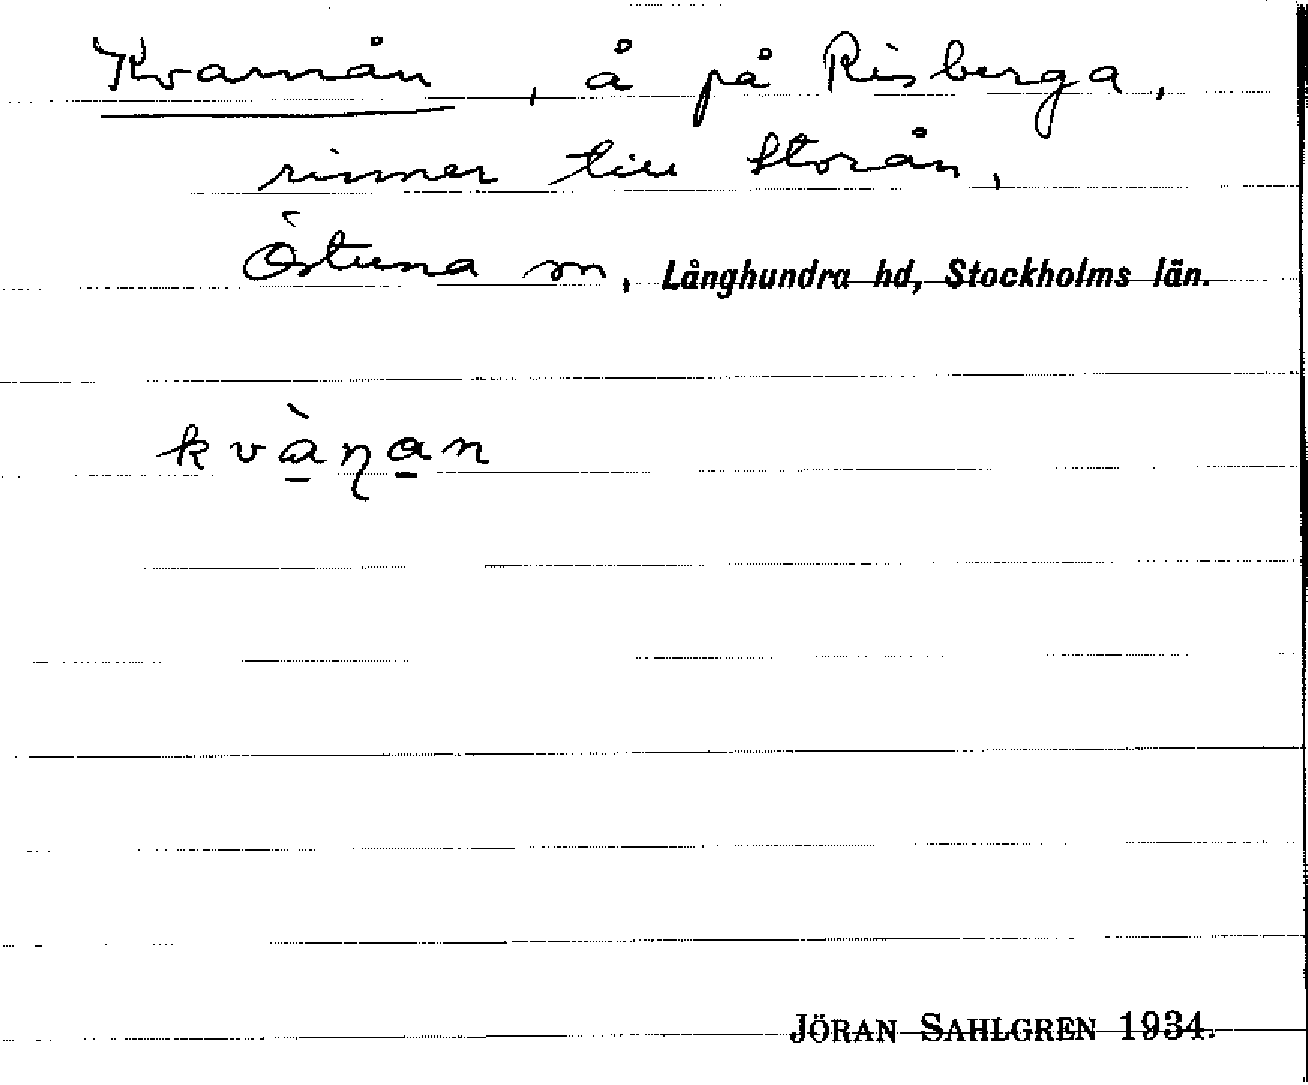 Kvarnån, å på Risberga,
rinner till Storån,
Östuna sn, Långhundra hd, Stockholms län.
kvàɳan
JÖRAN SAHLGREN 1934.